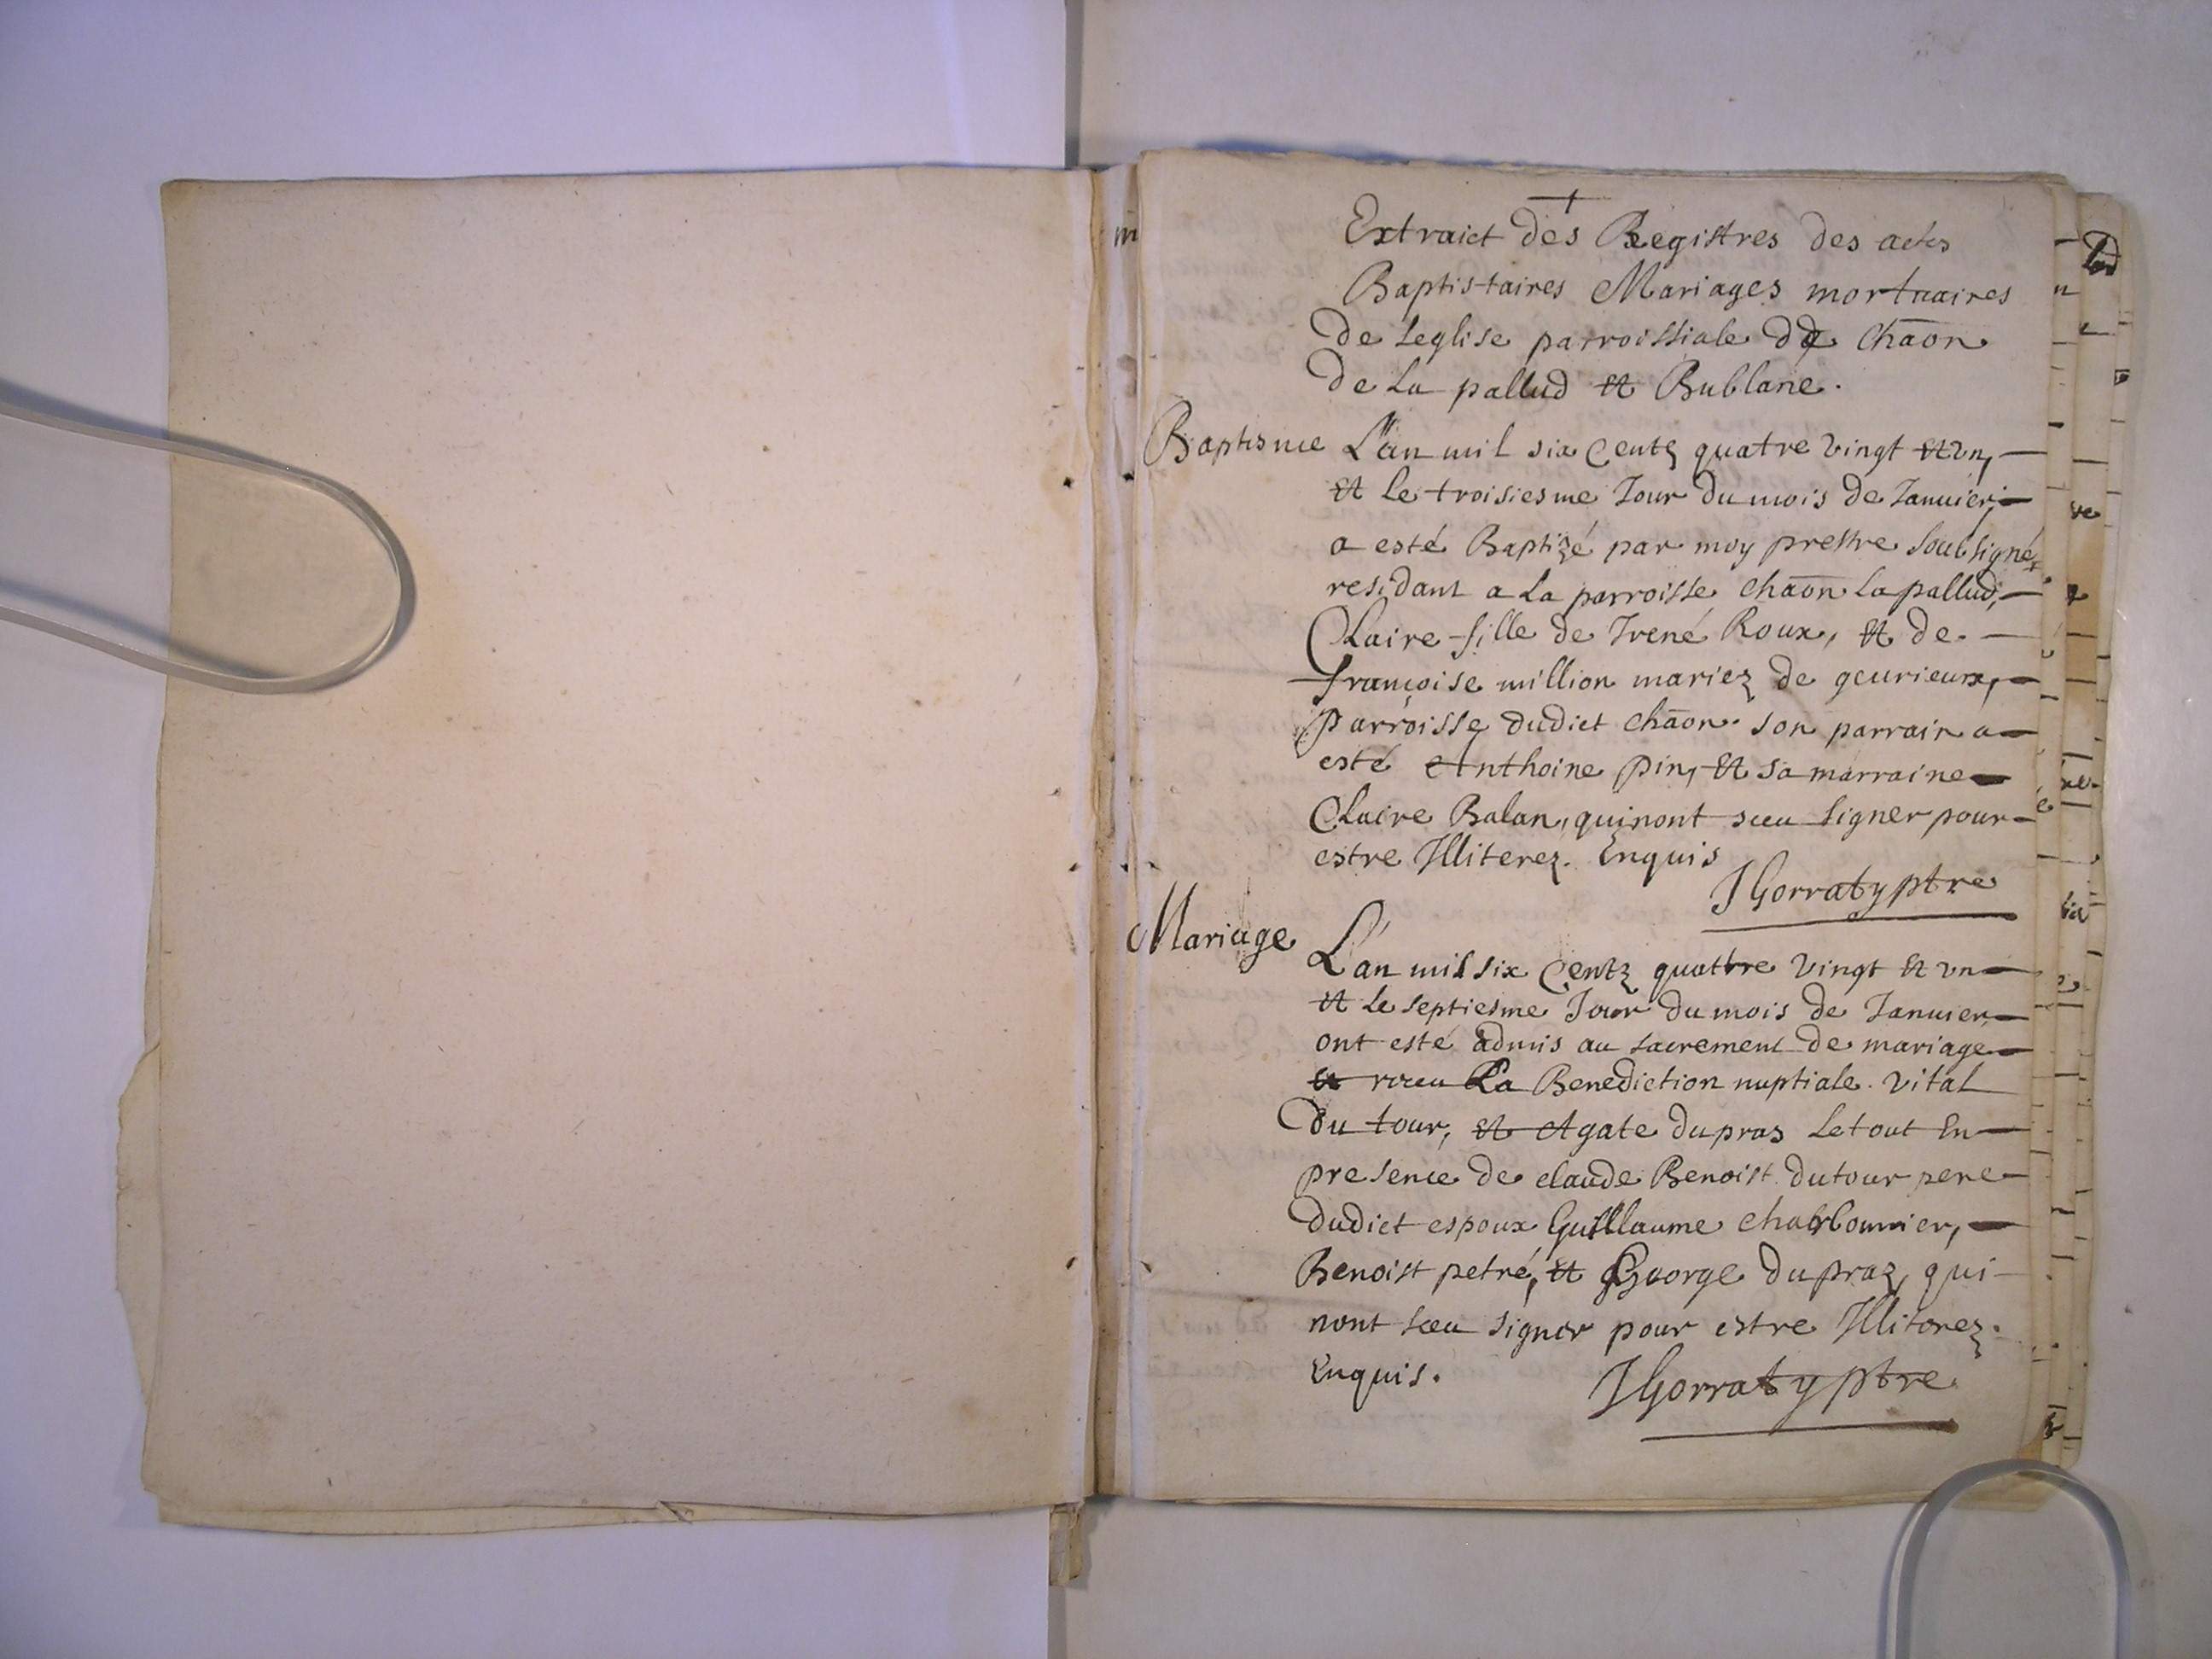 †
Extraict des Registres des actes
Baptistaires Mariages mortuaires
De Leglise parroissiale de Chāon
De La pallud et Bublane.
Baptisme L'an mil six Centz quatre vingt et vn,
et le troisiesme Jour du mois de Januier,
a esté Baptizé par moy prestre soubsigné
residant a La parroisse Chāon La pallud,
Claire fille de Irené Roux, et de
françoise million mariez de geurieux,
Parroisse dudict Chāon. son parrain a
esté Anthoine pin, et sa marraine
Claire Balan, qui nont sceu signer pour
estre Illiterez. Enquis
JGorraty ptre
Mariage
L'an mil six Centz quattre vingt et vn
et le septiesme Jour du mois de Januier,
ont esté admis au sacrement de mariage
et receu La Benediction nuptiale. vital
Du tour, et Agate dupras Le tout En
presence de claude Benoist dutour pere
dudict espoux Guillaume charbonnier,
Benoist petré, et George dupraz, qui
nont sceu signer pour estre Illiterez.
Enquis. JGorraty ptre